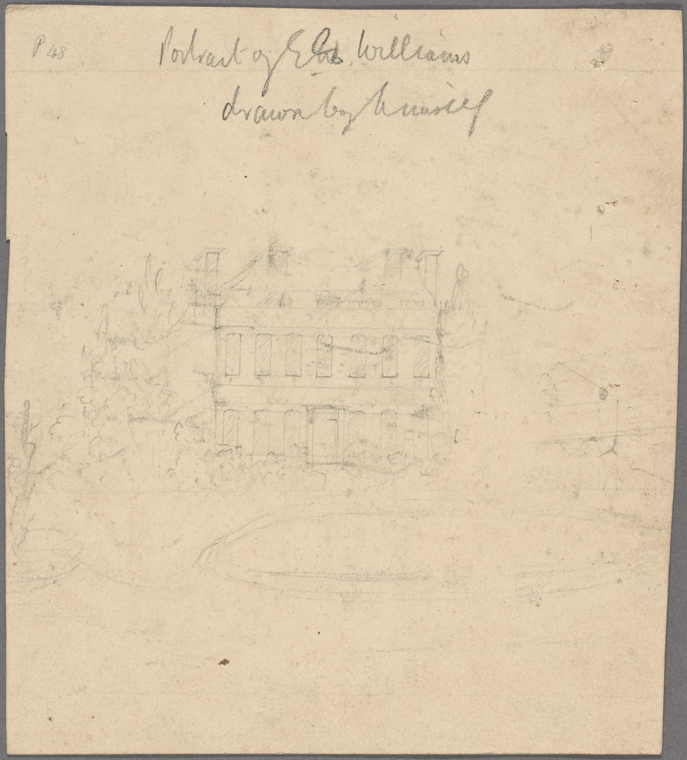 P 48
Portrait of Williams
drawn by himself